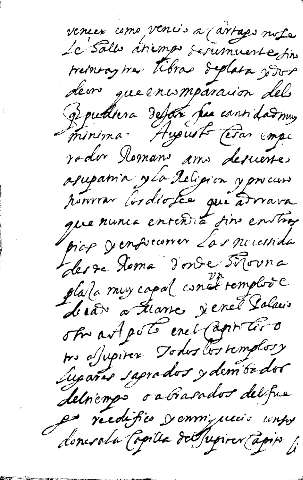 vencer como vencio a Cartago no se
le hallo a tiempo de su muerte sino
treinta y tres libras de plata y dos
de oro que en comparacion de lo
q pudiera dejar fue cantidad muy
minima. Augusto Cesar empe
rador Romano amo de suerte
a su patria y la Religion y procuro
honrrar los dioses que adorava
que nunca entendia sino en obras
pias y en socorrer las necessida
des de Roma donde hizo una
plaça muy capaz con un templo de
dicado a Marte y en el Palacio
otro a Apolo en el Capitolio o
tro a Jupiter Todos los templos y
lugares sagrados y derribados
del tiempo o abrasados del fue
go reedifico y enrriquecio con sus
dones a la Capilla del Jupiter Capito
li